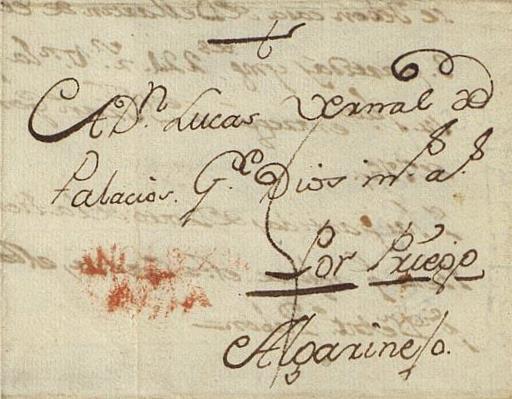 A Dn. Lucas Vernal de
Palacios. Ge. Dios m.s a.s
Por Priego
Algarinejo.